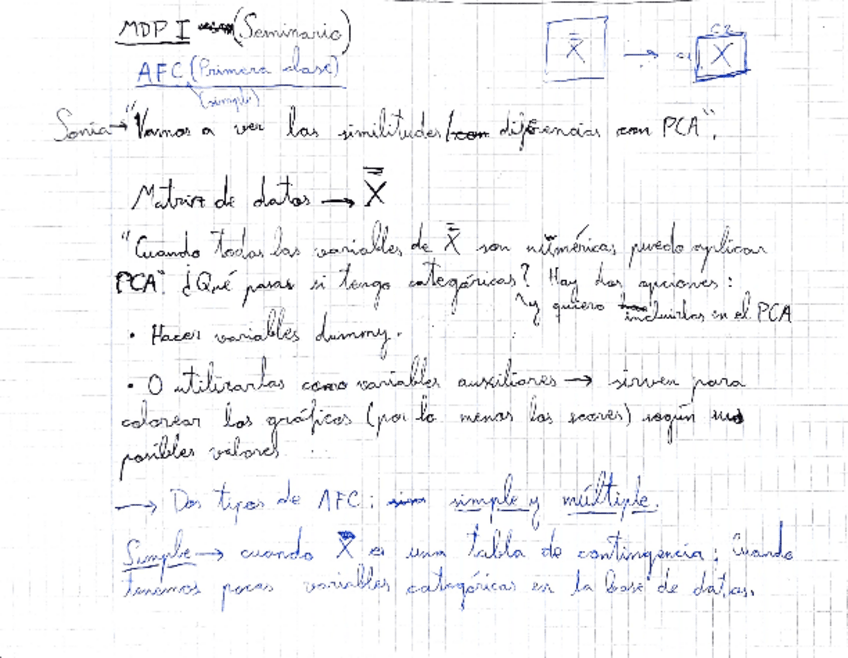 MDP I (Seminario)
AFC (Primera clase)
(simple)
X → X
C2
Sonia → "Vamos a ver las similitudes/ diferencias con PCA".
Matriz de datos → X
"Cuando todas las variables de X son numéricas, puedo aplicar
PCA". ¿Qué pasa si tengo categóricas? Hay dos opciones:
y quiero incluirlas en el PCA
• Hacer variables dummy.
• O utilizarlas como variables auxiliares → sirven para
colorear los gráficos (por lo menos los scores) según sus
posibles valores
→ Dos tipos de AFC: simple y múltiple.
Simple → cuando X es una tabla de contingencia; Cuando
tenemos pocas variables categóricas en la base de datos.